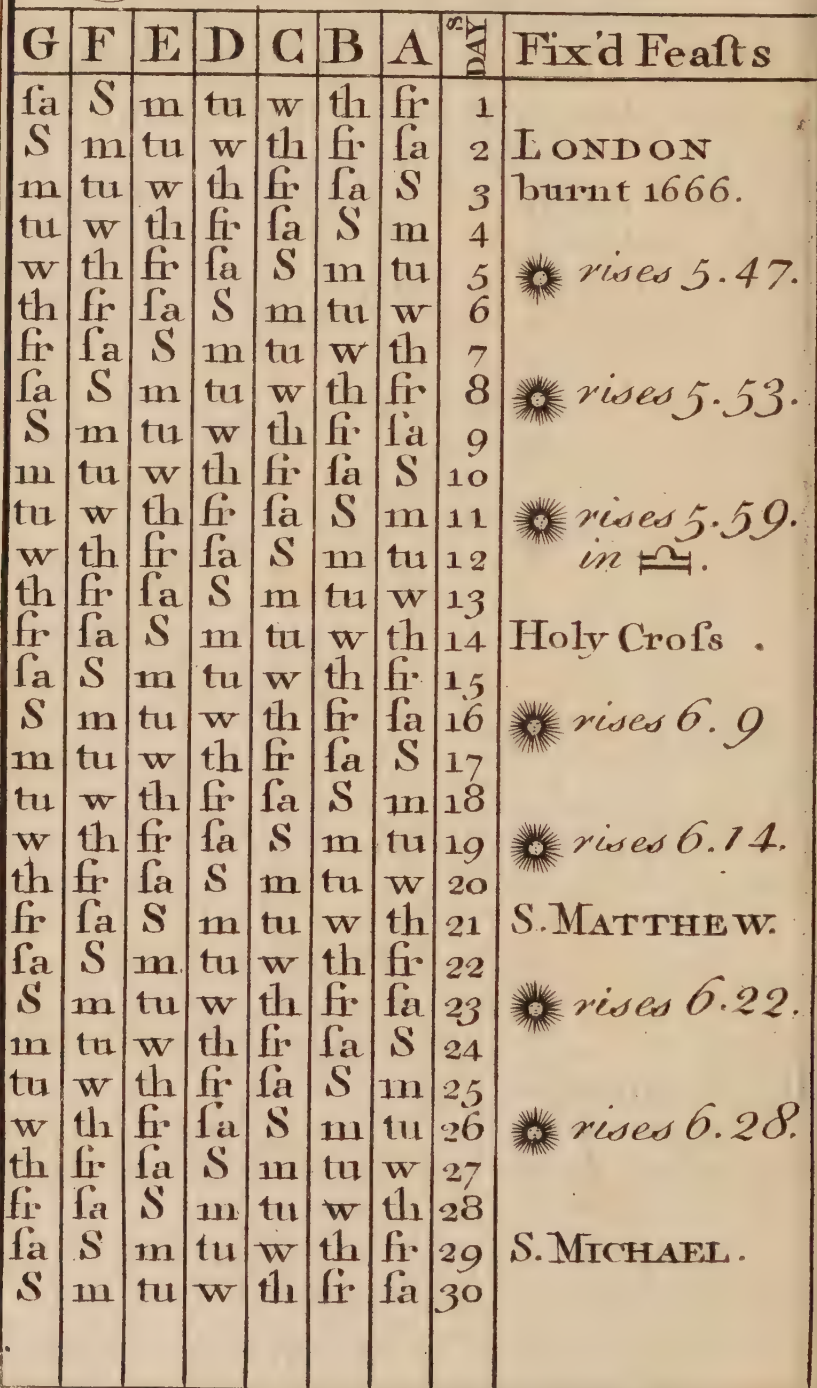 G F E D C B A DAYS Fix'd Feaſts
ſa S m tu w th fr 1
S m tu w th fr ſa 2 LONDON
m tu w th fr ſa S 3 burnt 1666.
tu w th fr ſa S m 4
w th fr ſa S m tu 5 rises 5.47.
th fr ſa S m tu w 6
fr ſa S m tu w th 7
ſa S m tu w th fr 8 rises 5.53.
S m tu w th fr ſa 9
m tu w th fr ſa S 10
tu w th fr ſa S m 11 rises 5.59.
w th fr ſa S m tu 12 in ♎.
th fr ſa S m tu w 13
fr ſa S m tu w th 14 Holy Croſs .
ſa S m tu w th fr 15
S m tu w th fr ſa 16 rises 6. 9
m tu w th fr ſa S 17
tu w th fr ſa S m 18
w th fr ſa S m tu 19 rises 6.14.
th fr ſa S m tu w 20
fr ſa S m tu w th 21 S. MATTHEW.
ſa S m tu w th fr 22
S m tu w th fr ſa 23 rises 6.22.
m tu w th fr ſa S 24
tu w th fr ſa S m 25
w th fr ſa S m tu 26 rises 6.28.
th fr ſa S m tu w 27
fr ſa S m tu w th 28
ſa S m tu w th fr 29 S. MICHAEL.
S m tu w th fr ſa 30